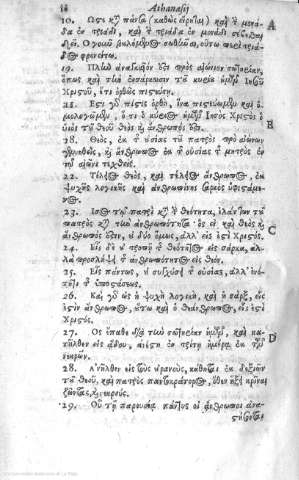 Athanasij
Ὥστε κτ̃ πάντα (καθὼς εἴρηται) καὶ τ̃ μονά- A
δα ἐν τριάδι, καὶ τ̃ τριάδα ἐν μονάδι
Ὁ γοῦν βουλόμενος σωθῆναι, οὕτω περὶ τριά-
δος φρονείτω.
19. Πλὴν ἀναγκαῖον ἔτι πρὸς αἰώνιον σωτηρίαν,
ὅπως καὶ τὴν ἐνσάρκωσιν τοῦ κυρίου ἡμῶν Ἰησοῦ
Χριστοῦ, ὀρθῶς πιστεύῃ.
Ἔστι γὰρ πίστις ὀρθὴ, ἵνα πιστεύωμεν καὶ ὁ- B
μολογῶμεν, ὅτι ὁ κύριος ἡμῶν Ἰησοῦς Χριστὸς ὁ
υἱὸς τοῦ Θεοῦ Θεὸς καὶ ἄνθρωπός ἐστι.
Θεὸς, ἐκ τ̃ οὐσίας τοῦ πατρὸς πρὸ αἰώνων
γεννηθεὶς, καὶ ἄνθρωπος ἐκ τ̃ οὐσίας τ̃ μητρὸς ἐν
τεχθείς.
22. Τέλειος Θεὸς, καὶ τέλειος ἄνθρωπος, ἐκ
ψυχῆς λογικῆς καὶ ἀνθρωπίνης σαρκὸς ὑφιστάμε-
νος.
23. Ἴσος τῷ πατρὶ κτ̃ τ̃ θεότητα, ἐλάττων τοῦ C
πατρὸς κτ̃ τὴν ἀνθρωπότητα· ὃς εἰ καὶ Θεὸς καὶ
ἄνθρωπός ἐστιν, οὐ δύο ὅμως, ἀλλ' εἷς ἐστὶ Χριστός.
24. Εἷς δὲ οὐ τροπῇ τ̃ θεότητος εἰς σάρκα, ἀλ-
λὰ προσλήψει τ̃ ἀνθρωπότητος εἰς Θεόν.
25. Εἷς πάντως, οὐ συγχύσει τ̃ οὐσίας, ἀλλ' ἑνό-
τητι τ̃ ὑποστάσεως.
26. Καὶ γὰρ ὡς ἡ ψυχὴ λογικὴ, καὶ ἡ σὰρξ, εἷς
ἐστὶν ἄνθρωπος, οὕτω καὶ ὁ Θεάνθρωπος, εἷς ἐστὶ
Χριστός.
27. Ὃς ἔπαθε διὰ τὴν σωτηρίαν ἡμῶν, καὶ κα- D
τῆλθεν εἰς ᾅδου, ἀνέστη ἐν τρίτῃ ἡμέρᾳ ἐκ τῶν
νεκρῶν.
28. Ἀνῆλθεν εἰς τοὺς οὐρανοὺς, κάθηται ἐκ δεξιῶν
τοῦ Θεοῦ, καὶ πατρὸς παντοκράτορος, ὅθεν ἥξει κρῖναι
ζῶντας, καὶ νεκρούς.
29. Οὗ τῇ παρουσίᾳ πάντες οἱ ἄνθρωποι ἀνα-
στήσονται